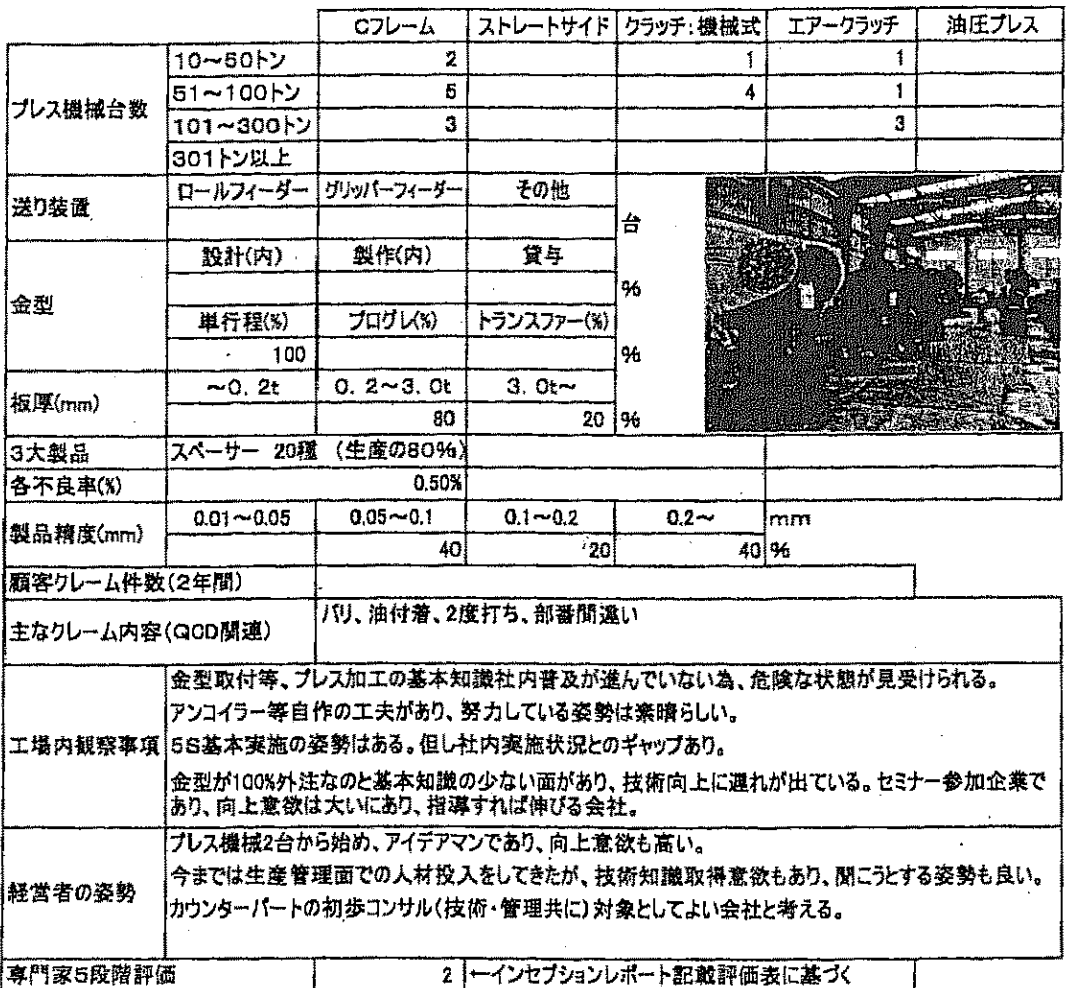 Cフレーム ストレートサイド クラッチ:機械式 エアークラッチ 油圧プレス
プレス機械台数 10~50トン 2 1 1
51~100トン 5 4 1
101~300トン 3 3
301トン以上
送り装置 ロールフィーダー グリッパーフィーダー その他
台
金型 設計(内) 製作(内) 貸与
%
単行程(%) プログレ(%) トランスファー(%)
100 %
板厚(mm) ~0.2t 0.2~3.0t 3.0t~
80 20 %
3大製品 スペーサー 20種 (生産の80%)
各不良率(%) 0.50%
製品精度(mm) 0.01~0.05 0.05~0.1 0.1~0.2 0.2~ mm
40 20 40 %
顧客クレーム件数(2年間)
主なクレーム内容(QCD関連) バリ、油付着、2度打ち、部番間違い
工場内観察事項 金型取付等、プレス加工の基本知識社内普及が進んでいない為、危険な状態が見受けられる。
アンコイラー等自作の工夫があり、努力している姿勢は素晴らしい。
5S基本実施の姿勢はある。但し社内実施状況とのギャップあり。
金型が100%外注なのと基本知識の少ない面があり、技術向上に遅れが出ている。セミナー参加企業で
あり、向上意欲は大いにあり、指導すれば伸びる会社。
経営者の姿勢 プレス機械2台から始め、アイデアマンであり、向上意欲も高い。
今までは生産管理面での人材投入をしてきたが、技術知識取得意欲もあり、聞こうとする姿勢も良い。
カウンターパートの初歩コンサル(技術・管理共に)対象としてよい会社と考える。
専門家5段階評価 2 ←インセプションレポート記載評価表に基づく